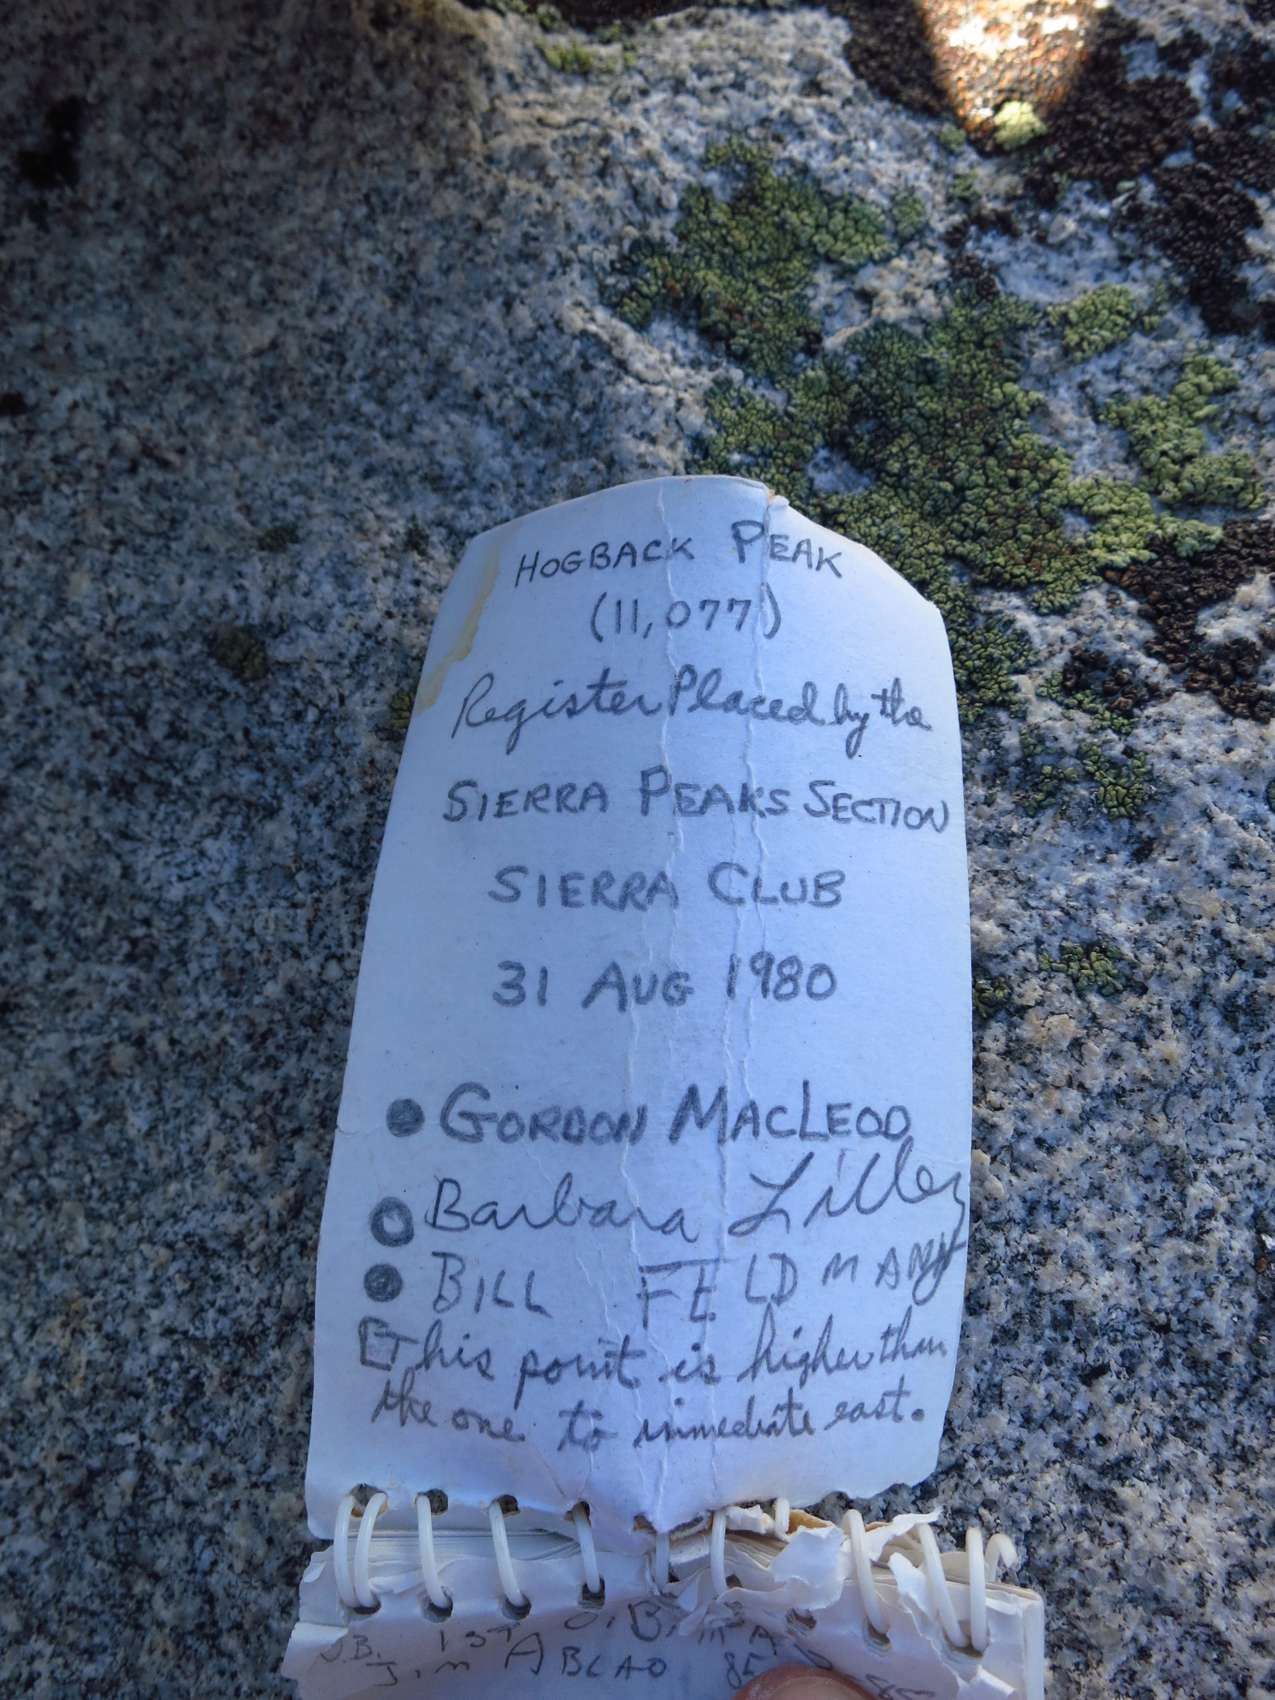 HOGBACK PEAK
(11,077)
Register Placed by the
SIERRA PEAKS SECTION
SIERRA CLUB
31 AUG 1980
GORDON MACLEOD
Barbara Lilley
BILL FELDMAN
This point is higher than
the one to immediate east.
J.B. 1ST
Jim ABCAO 85